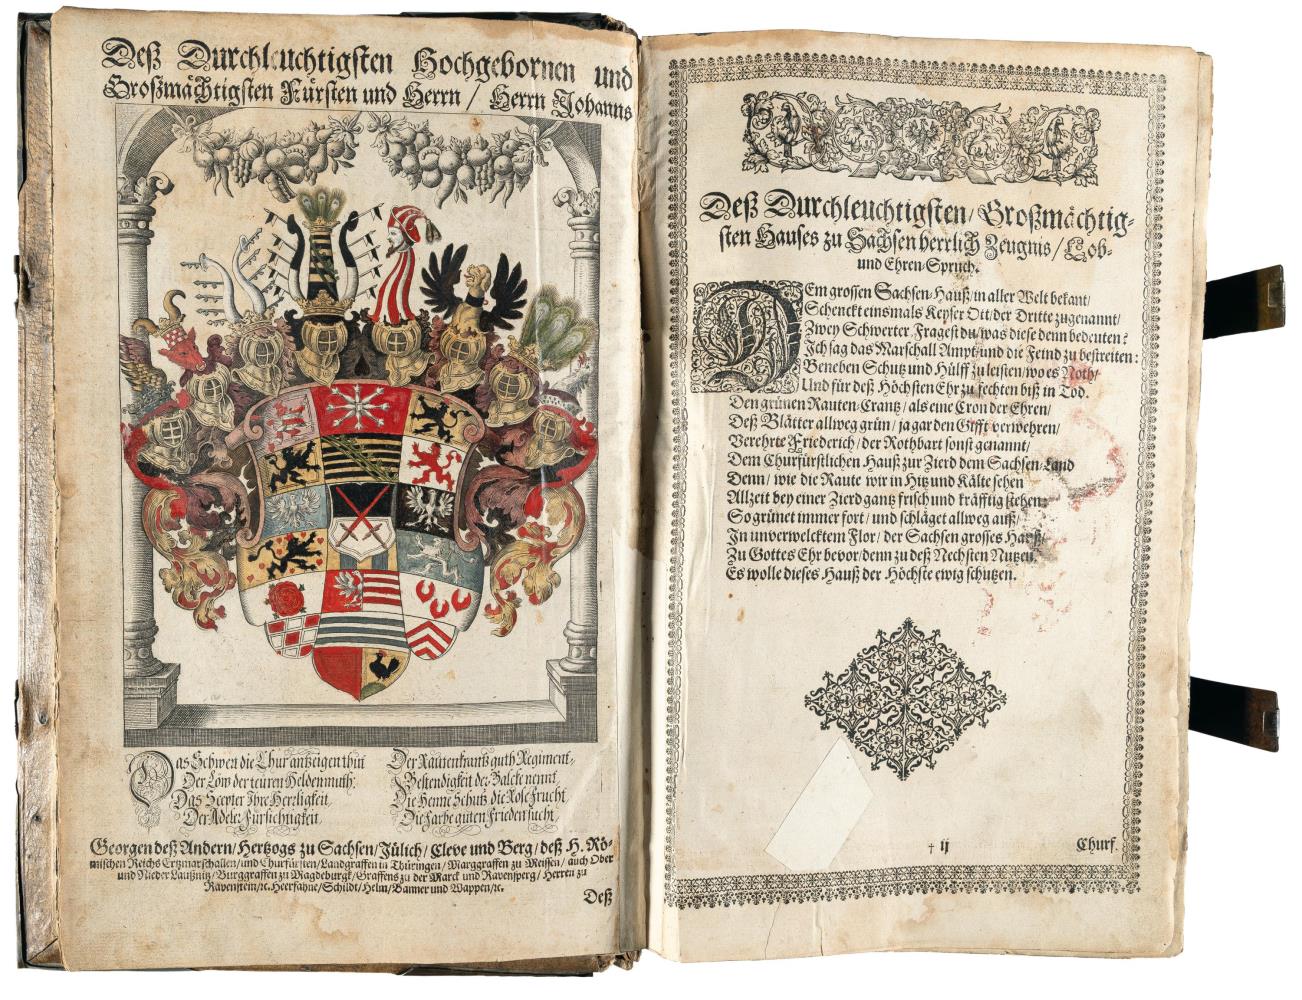 Deß Durchleuchtigsten Hochgebornen und
Großmächtigsten Fürsten und Herrn / Herrn Johanns
Das Schwert die Chur antzeigen thut
Der Löw der teüren Heldenmuth.
Das Scepter Ihre Herzligkeit
Der Adeler Fürsichtigkeit,
Der Rautenkrantz guth Regiment,
Bestendigkeit der Balcke nennt
Die Henne Schutz die Rose Frucht
Die Farbe guten Frieden sucht,
Georgen deß Andern / Hertzogs zu Sachsen / Jülich / Cleve und Berg / deß H. Rö-
mischen Reichs Ertzmarschallen / und Churfürsten / Landgraffen in Thüringen / Marggraffen zu Meissen / auch Ober
und Nieder Laußnitz / Burggraffen zu Magdeburgk / Graffens zu der Marck und Ravensperg / Herren zu
Ravenstein / ec. Heerfahne / Schildt / Helm / Banner und Wappen / ec.
Deß
Deß Durchleuchtigsten / Großmächtig-
sten Hauses zu Sachsen herrlich Zeugnis / Lob-
und Ehren-Spruch.
DEm grossen Sachsen-Hauß / in aller Welt bekant /
Schenckt einsmals Keyser Ott / der Dritte zugenannt /
Zwey Schwerter. Fragest du / was diese denn bedeuten?
Ich sag das Marschall Ampt / und die Feind zu bestreiten:
Beneben Schutz und Hülff zu leisten / wo es Noth /
Und für deß Höchsten Ehr zu fechten biß in Tod.
Den grünen Rauten-Crantz / als eine Cron der Ehren /
Deß Blätter allweg grün / ja gar den Gifft verwehren /
Verehrte Friederich / der Rothbart sonst genannt /
Dem Churfürstlichen Hauß zur Zierd dem Sachsen-Land
Denn / wie die Raute wir in Hitz und Kälte sehen
Allzeit bey einer Zierd gantz frisch und kräfftig stehen:
So grünet immer fort / und schläget allweg auß /
In unverwelcktem Flor / der Sachsen grosses Hauß /
Zu Gottes Ehr bevor / denn zu deß Nechsten Nutzen.
Es wolle dieses Hauß der Höchste ewig schützen.
† ij
Churf.